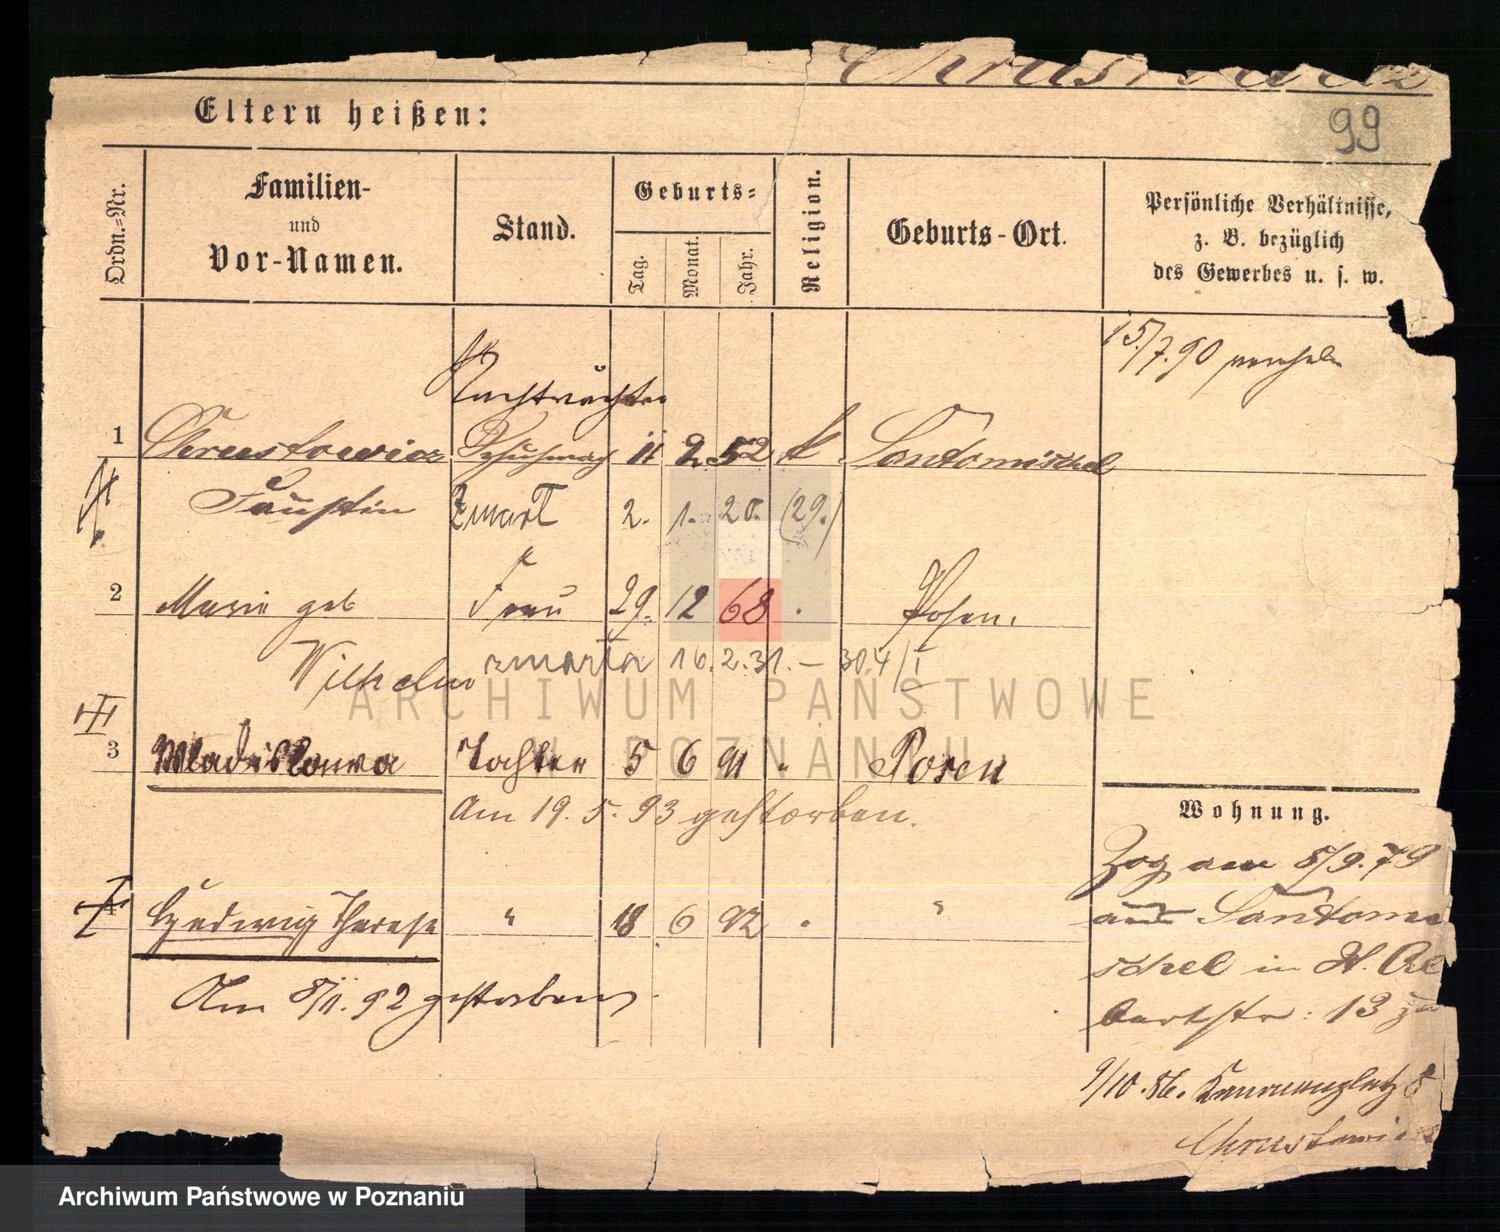 Chrustowicz
99
Eltern heißen:
Ordn.-Nr.
Familien-
und
Vor-Namen.
Stand.
Geburts-
Tag.
Monat.
Jahr.
Religion.
Geburts-Ort.
Persönliche Verhältnisse,
z. B. bezüglich
des Gewerbes u. s. w.
15/7.90
Nachtwächter
1 Chrustowicz 11 2 52 k Santomischel
Faustin Zmarł 2. 1. 20. (29.)
2 Marie geb Frau 29. 12 68 Posen.
Wilhelm zmarła 16.2.31. — 30.4/I
3 Wladislawa Tochter 5 6 91 " Posen
Am 19. 5. 93 gestorben.
4 Hedwig Therese " 18 6 92 " "
Am 8/11.92 gestorben.
Wohnung.
Zog am 8/9.79
aus Santomi
schel in St. Al
bertstr: 13 zu
9/10.86. 8
Chrustowicz
ARCHIWUM PAŃSTWOWE
W POZNANIU
Archiwum Państwowe w Poznaniu